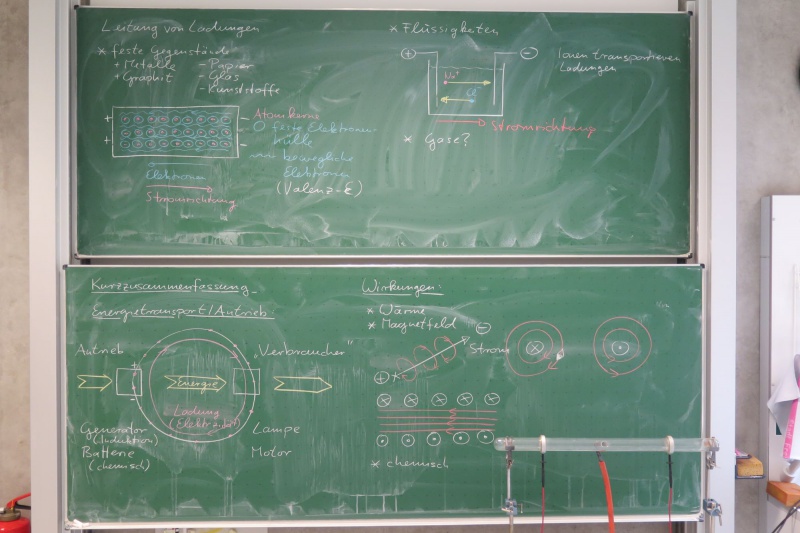 Leitung von Ladungen
* feste Gegenstände
+ Metalle - Papier
+ Graphit - Glas
- Kunststoffe
+ -
+ -
Atomkerne
O feste Elektronen-
hülle
bewegliche
Elektronen
(Valenz-E)
Elektronen
Stromrichtung
* Flüssigkeiten
+ -
Na⁺
Cl⁻
Ionen transportieren
Ladungen
Stromrichtung
* Gase?
Kurzzusammenfassung
Energietransport/Antrieb
Antrieb
"Verbraucher"
Energie
Ladung
(Elektrizität)
Generator
(Induktion)
Batterie
(chemisch)
Lampe
Motor
Wirkungen:
* Wärme
* Magnetfeld
-
Strom
+
* chemisch